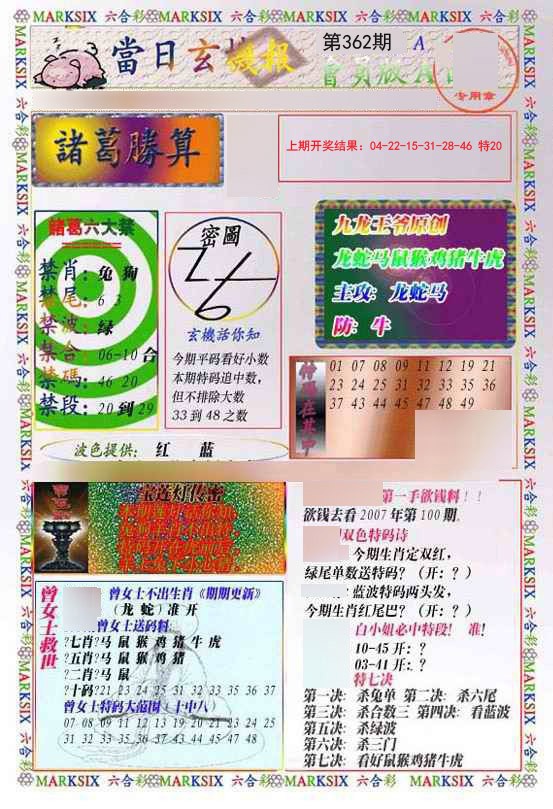 MARKSIX 六合彩 MARKSIX 六合彩 MARKSIX 六合彩 MARKSIX 六合彩
當日玄機報
第362期
A
會員版A
专用章
諸葛勝算
上期开奖结果：04-22-15-31-28-46 特20
諸葛六大禁
禁肖：兔 狗
禁尾：6 3
禁波：绿
禁合：06-10 合
禁碼：46 20
禁段：20 到 29
密圖
玄機話你知
今期平码看好小数
本期特码追中数，
但不排除大数
33 到 48 之数
九龙王爷原创
龙蛇马鼠猴鸡猪牛虎
主攻：龙蛇马
防：牛
特碼在其中
01 07 08 09 11 12 19 21
23 24 25 31 32 33 35 36
37 43 44 45 47 48 49
波色提供： 红 蓝
宝莲灯传密
第一手欲钱料！！
欲钱去看 2007 年第 100 期.
双色特码诗
今期生肖定双红，
绿尾单数送特码？（开：？）
蓝波特码两头发，
今期生肖红尾巴？（开：？）
白小姐必中特段! 准!
10-45 开：？
03-41 开：？
特七决
第一决：杀兔单 第二决：杀六尾
第三决：杀合数三 第四决：看蓝波
第五决：杀绿波
第六决：杀三门
第七决：看好鼠猴鸡猪牛虎
曾女士救世
曾女士不出生肖《期期更新》
（龙 蛇）准 开
曾女士送码料：
?七肖?马 鼠 猴 鸡 猪 牛 虎
?五肖?马 鼠 猴 鸡 猪
?二肖?马 鼠
?十码?21 23 24 25 31 32 33 35 36 37
曾女士特码大范围（十中八）
07 08 09 11 12 13 19 20 21 23 24 25
31 32 33 35 36 37 43 44 45 47 48
MARKSIX 六合彩 MARKSIX 六合彩 MARKSIX 六合彩 MARKSIX 六合彩